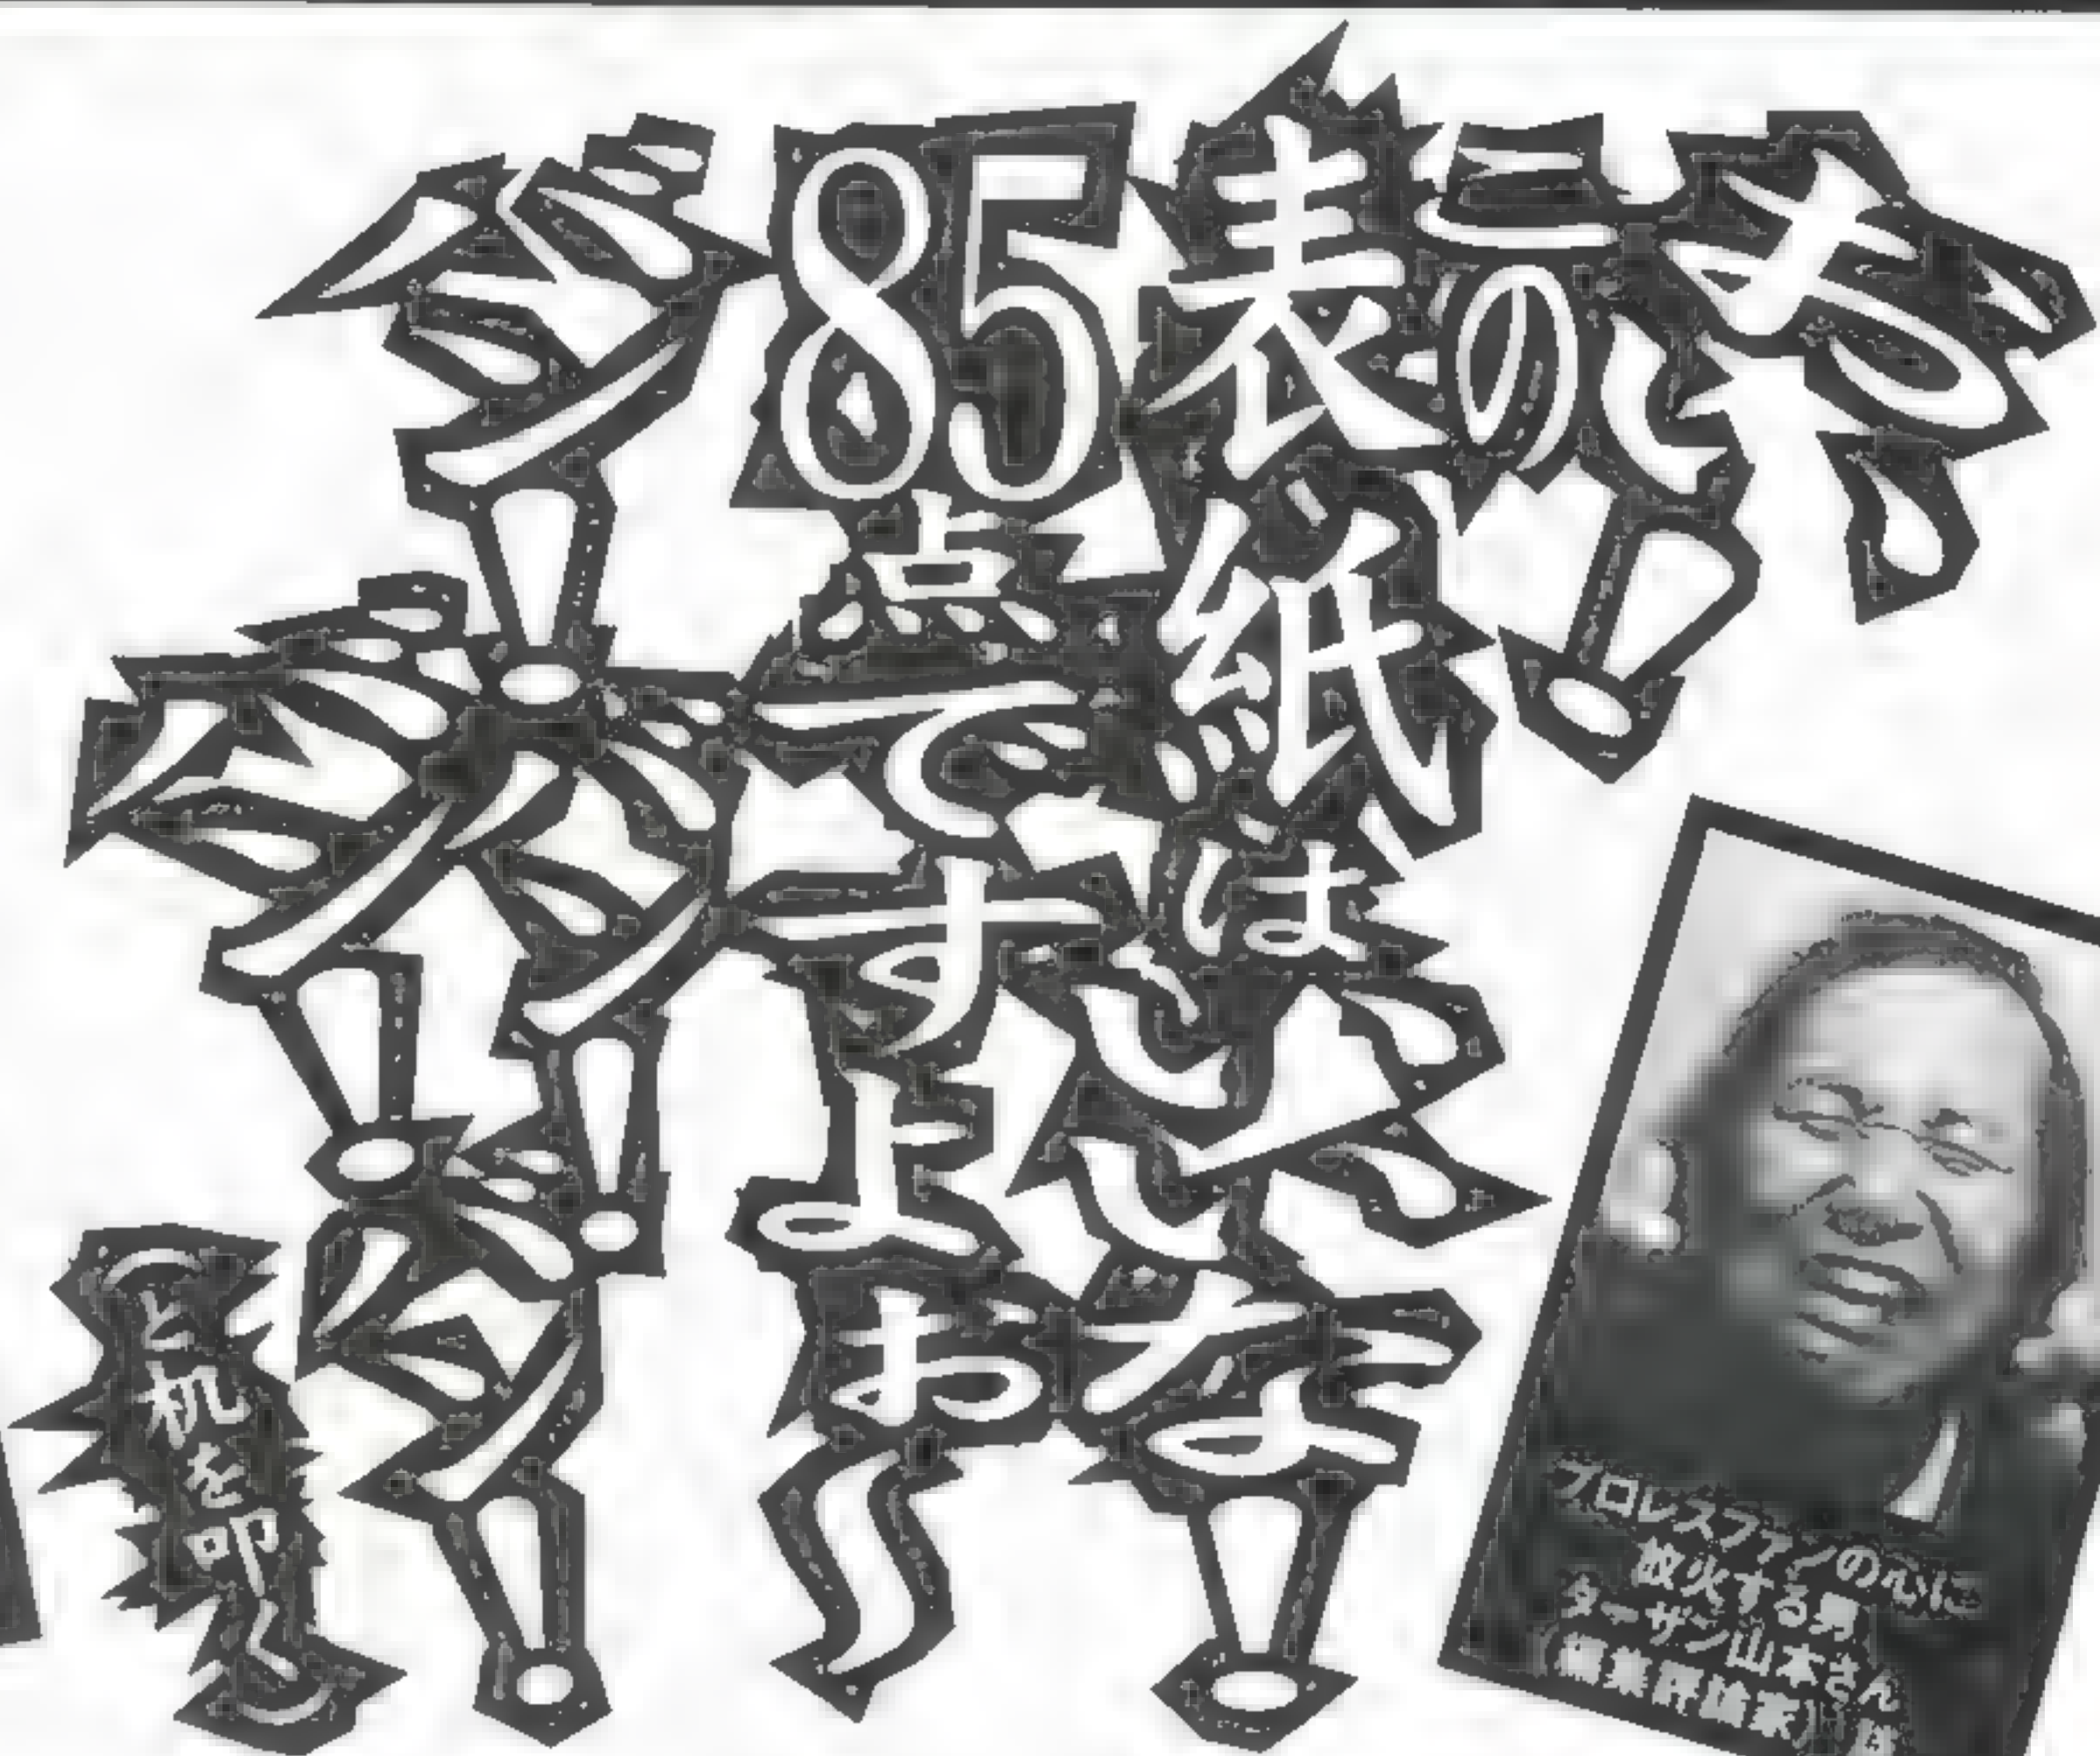 お、
い！
この
表紙は
いいな！
85点ですよお〜
バン！
バン！
バン！
バン！
（と机を叩く）
プロレスファンの心に
放火する男
ターザン山本さん
（編集評論家）は